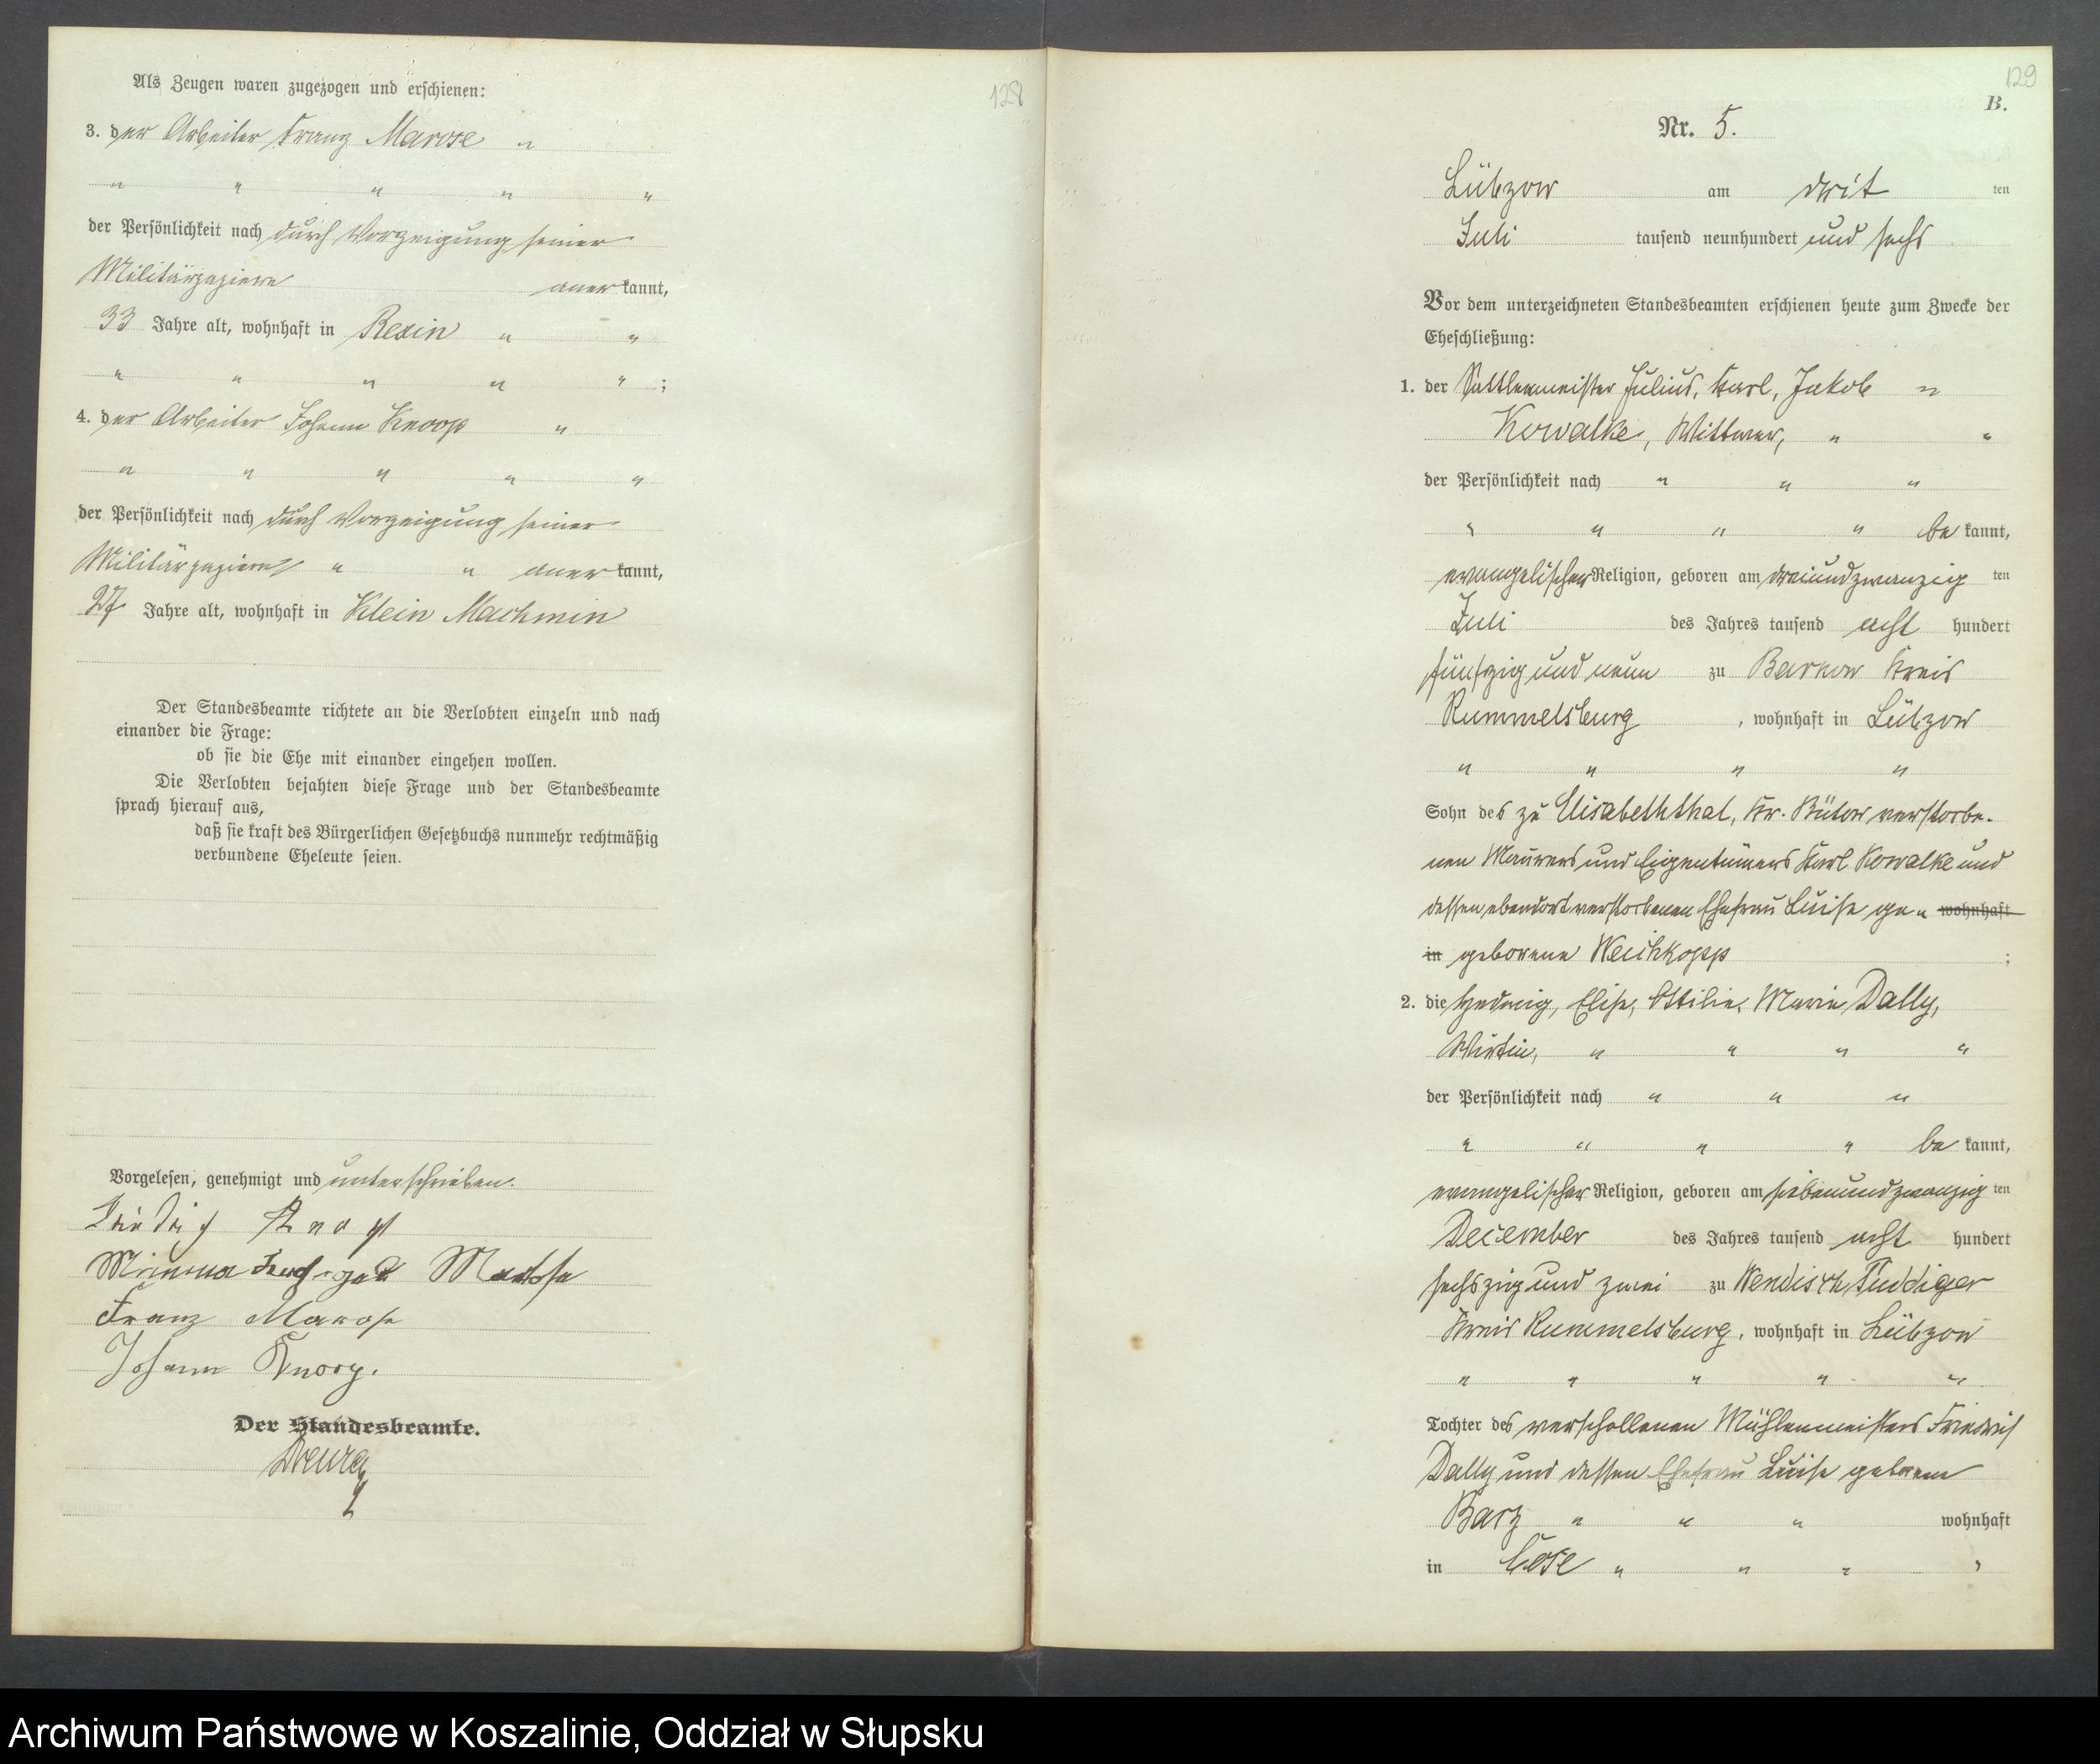 128
Als Zeugen waren zugezogen und erschienen:
3. der Arbeiter Franz Marose "
" " " " "
der Persönlichkeit nach durch Vorzeigung seiner
Militärpapiere anerkannt,
33 Jahre alt, wohnhaft in Rexin " "
" " " " " ;
4. der Arbeiter Johann Knoop "
" " " " "
der Persönlichkeit nach durch Vorzeigung seiner
Militärpapiere " " anerkannt,
27 Jahre alt, wohnhaft in Klein Machmin
Der Standesbeamte richtete an die Verlobten einzeln und nach
einander die Frage:
ob sie die Ehe mit einander eingehen wollen.
Die Verlobten bejahten diese Frage und der Standesbeamte
sprach hierauf aus,
daß sie kraft des Bürgerlichen Gesetzbuchs nunmehr rechtmäßig
verbundene Eheleute seien.
Vorgelesen, genehmigt und unterschrieben.
Friedrich Knop
Minna Marose
Franz Marose
Johann Knoop.
Der Standesbeamte.
129
B.
Nr. 5.
Lübzow am dritten
Juli tausend neunhundert und sechs
Vor dem unterzeichneten Standesbeamten erschienen heute zum Zwecke der
Eheschließung:
1. der Sattlermeister Julius, Karl, Jakob "
Kowalke, Wittwer, " "
der Persönlichkeit nach " " "
" " " " bekannt,
evangelischer Religion, geboren am dreiundzwanzigten
Juli des Jahres tausend acht hundert
fünfzig und neun zu Barnow Kreis
Rummelsburg, wohnhaft in Lübzow
" " " "
Sohn des zu Elisabeththal, Kr. Bütow verstorbe-
nen Maurers und Eigentümers Karl Kowalke und
dessen ebendort verstorbenen Ehefrau Luise ge " wohnhaft
in geborene Weichkopp ;
2. die Hedwig, Elise, Ottilie, Marie Dally,
Wirtin, " " " "
der Persönlichkeit nach " " "
" " " " bekannt,
evangelischer Religion, geboren am siebenundzwanzigten
December des Jahres tausend acht hundert
sechszig und zwei zu Wendisch Puddiger
Kreis Rummelsburg, wohnhaft in Lübzow
" " " " "
Tochter des verschollenen Mühlenmeisters Friedrich
Dally und dessen Ehefrau Luise geborene
Barz " " " wohnhaft
in Cose " " " "
Archiwum Państwowe w Koszalinie, Oddział w Słupsku